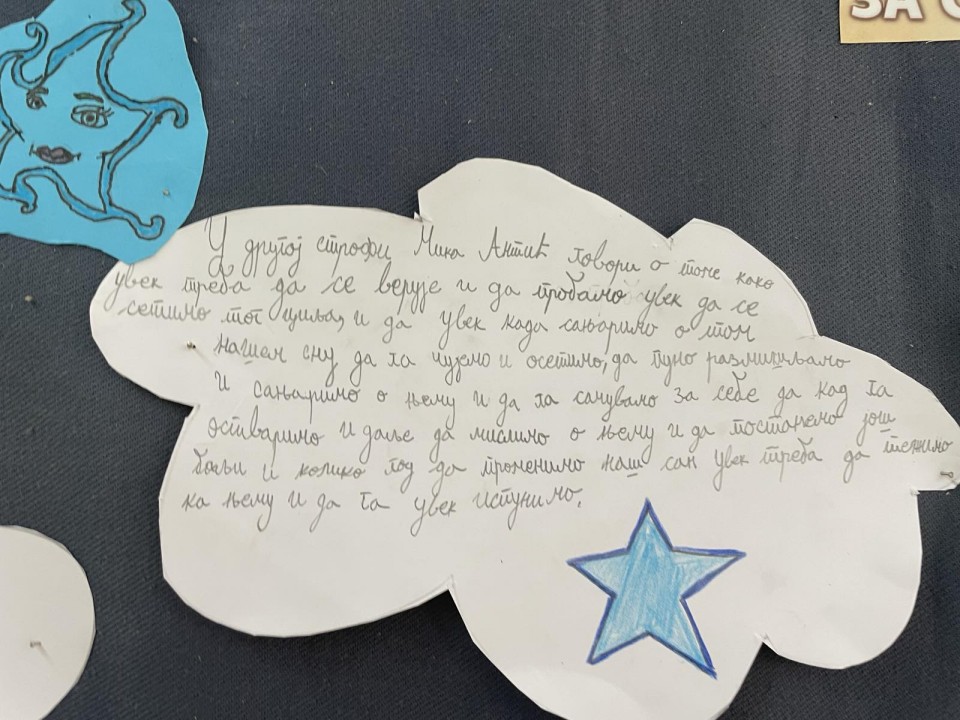 ЗА
У другој строфи Мика Антић говори о томе како
увек треба да се верује и да пробамо увек да се
сетимо тог циља, и да увек када сањаримо о том
нашем сну да га чујемо и осетимо, да пуно размишљамо
и сањаримо о њему и да га сачувамо за себе да кад га
остваримо и даље да мислимо о њему и да постанемо још
бољи и колико год да променимо наш сан увек треба да тежимо
ка њему и да га увек испунимо.